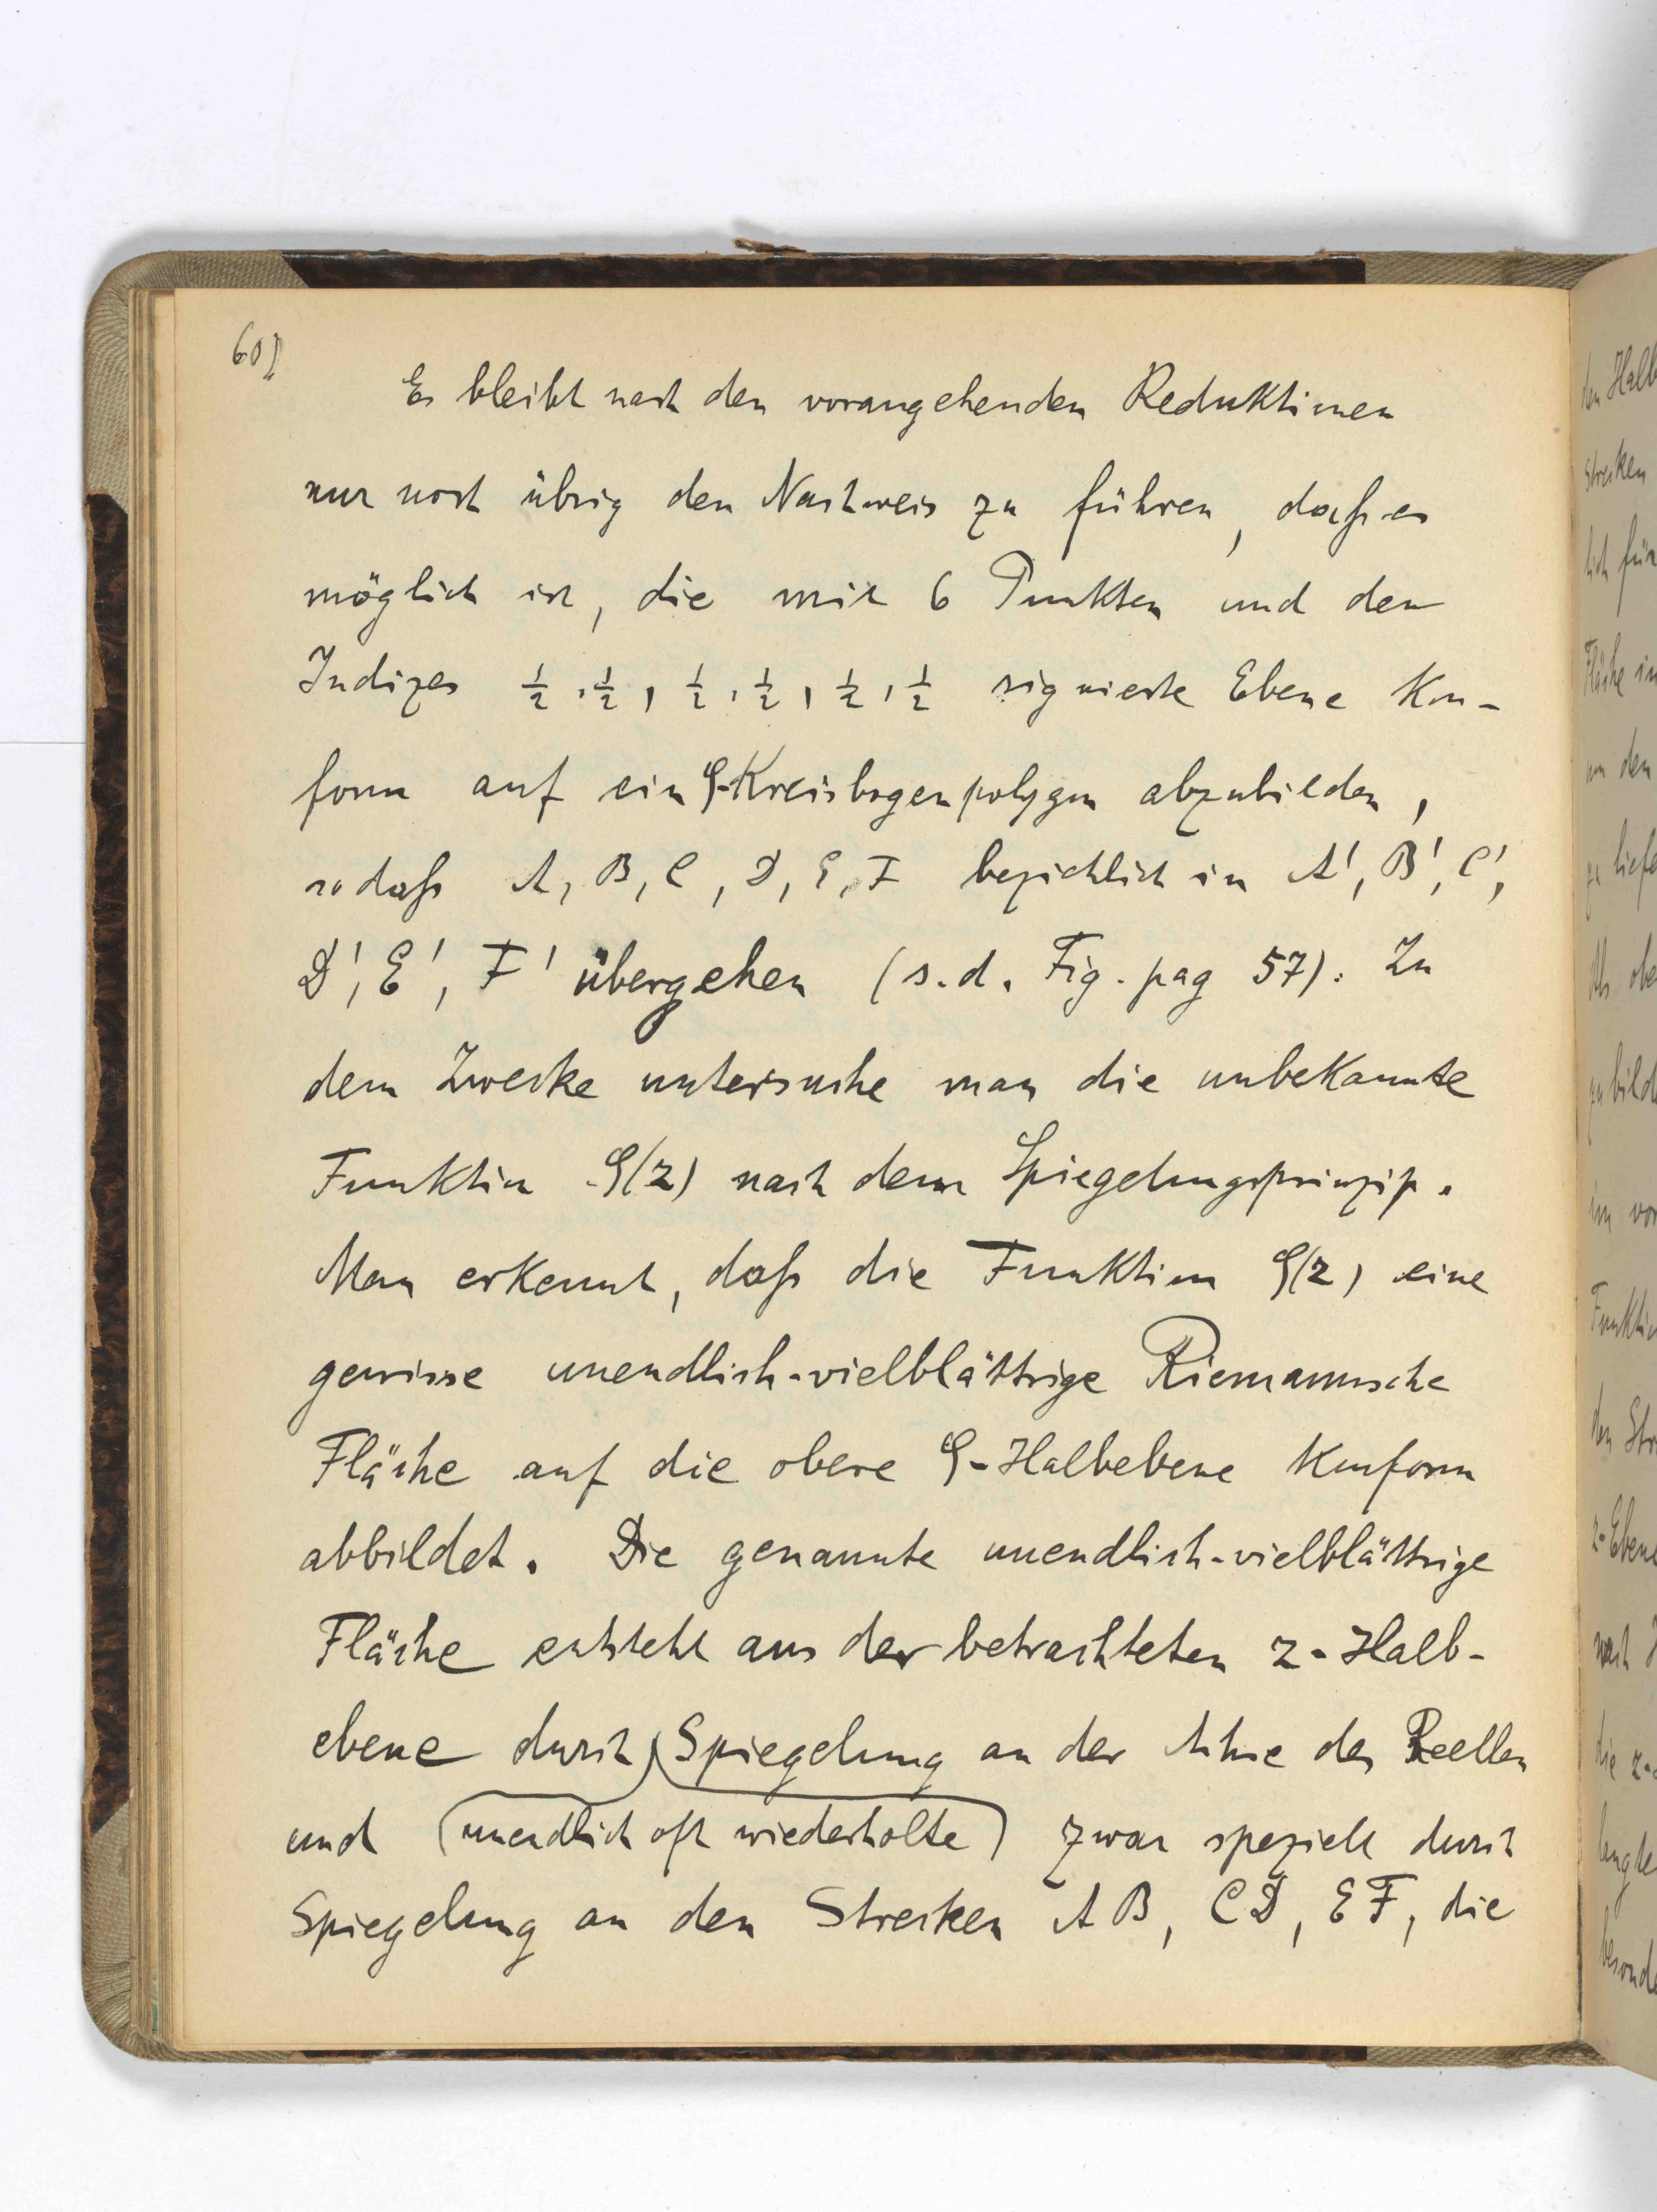 60]
Es bleibt nach den vorangehenden Reduktionen
nur noch übrig den Nachweis zu führen, daß es
möglich ist, die mit 6 Punkten und den
Indizes ½, ½, ½, ½, ½, ½ signierte Ebene kon-
form auf ein ζ-Kreisbogenpolygon abzubilden,
sodaß A, B, C, D, E, F bezichlich in A', B', C',
D', E', F' übergehen (s. d. Fig. pag 57). Zu
dem Zwecke untersuche man die unbekannte
Funktion ζ(z) nach dem Spiegelungsprinzip.
Man erkennt, daß die Funktion ζ(z) eine
gewisse unendlich-vielblättrige Riemannsche
Fläche auf die obere ζ-Halbebene konform
abbildet. Die genannte unendlich-vielblättrige
Fläche entsteht aus der betrachteten z-Halb-
ebene durch Spiegelung an der Achse des Reellen
und (unendlich oft wiederholte) zwar speziell durch
Spiegelung an den Strecken AB, CD, EF, die
den Halb
Strecken
lich für
Fläche in
an den
zu liefe
ob
zu bild
im vor
Funktio
den Str
z-Ebene
nach
die z-
besond